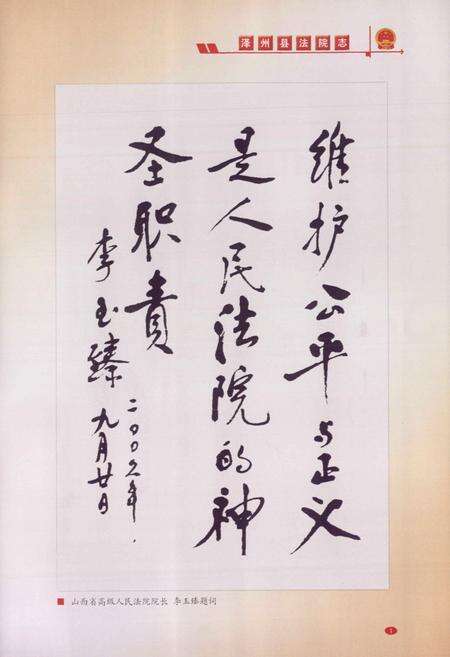 泽州县法院志
维护公平与正义
是人民法院的神
圣职责
李玉臻
二〇〇六年.
九月廿日
山西省高级人民法院院长 李玉臻题词